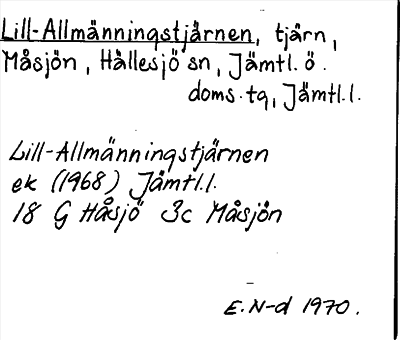 Lill-Allmänningstjärnen, tjärn,
Måsjön, Hällesjö sn, Jämtl. ö.
doms. tg, Jämtl. l.
Lill-Allmänningstjärnen
ek (1968) Jämtl. l.
18 G Håsjö 3c Måsjön
E. N-d 1970.